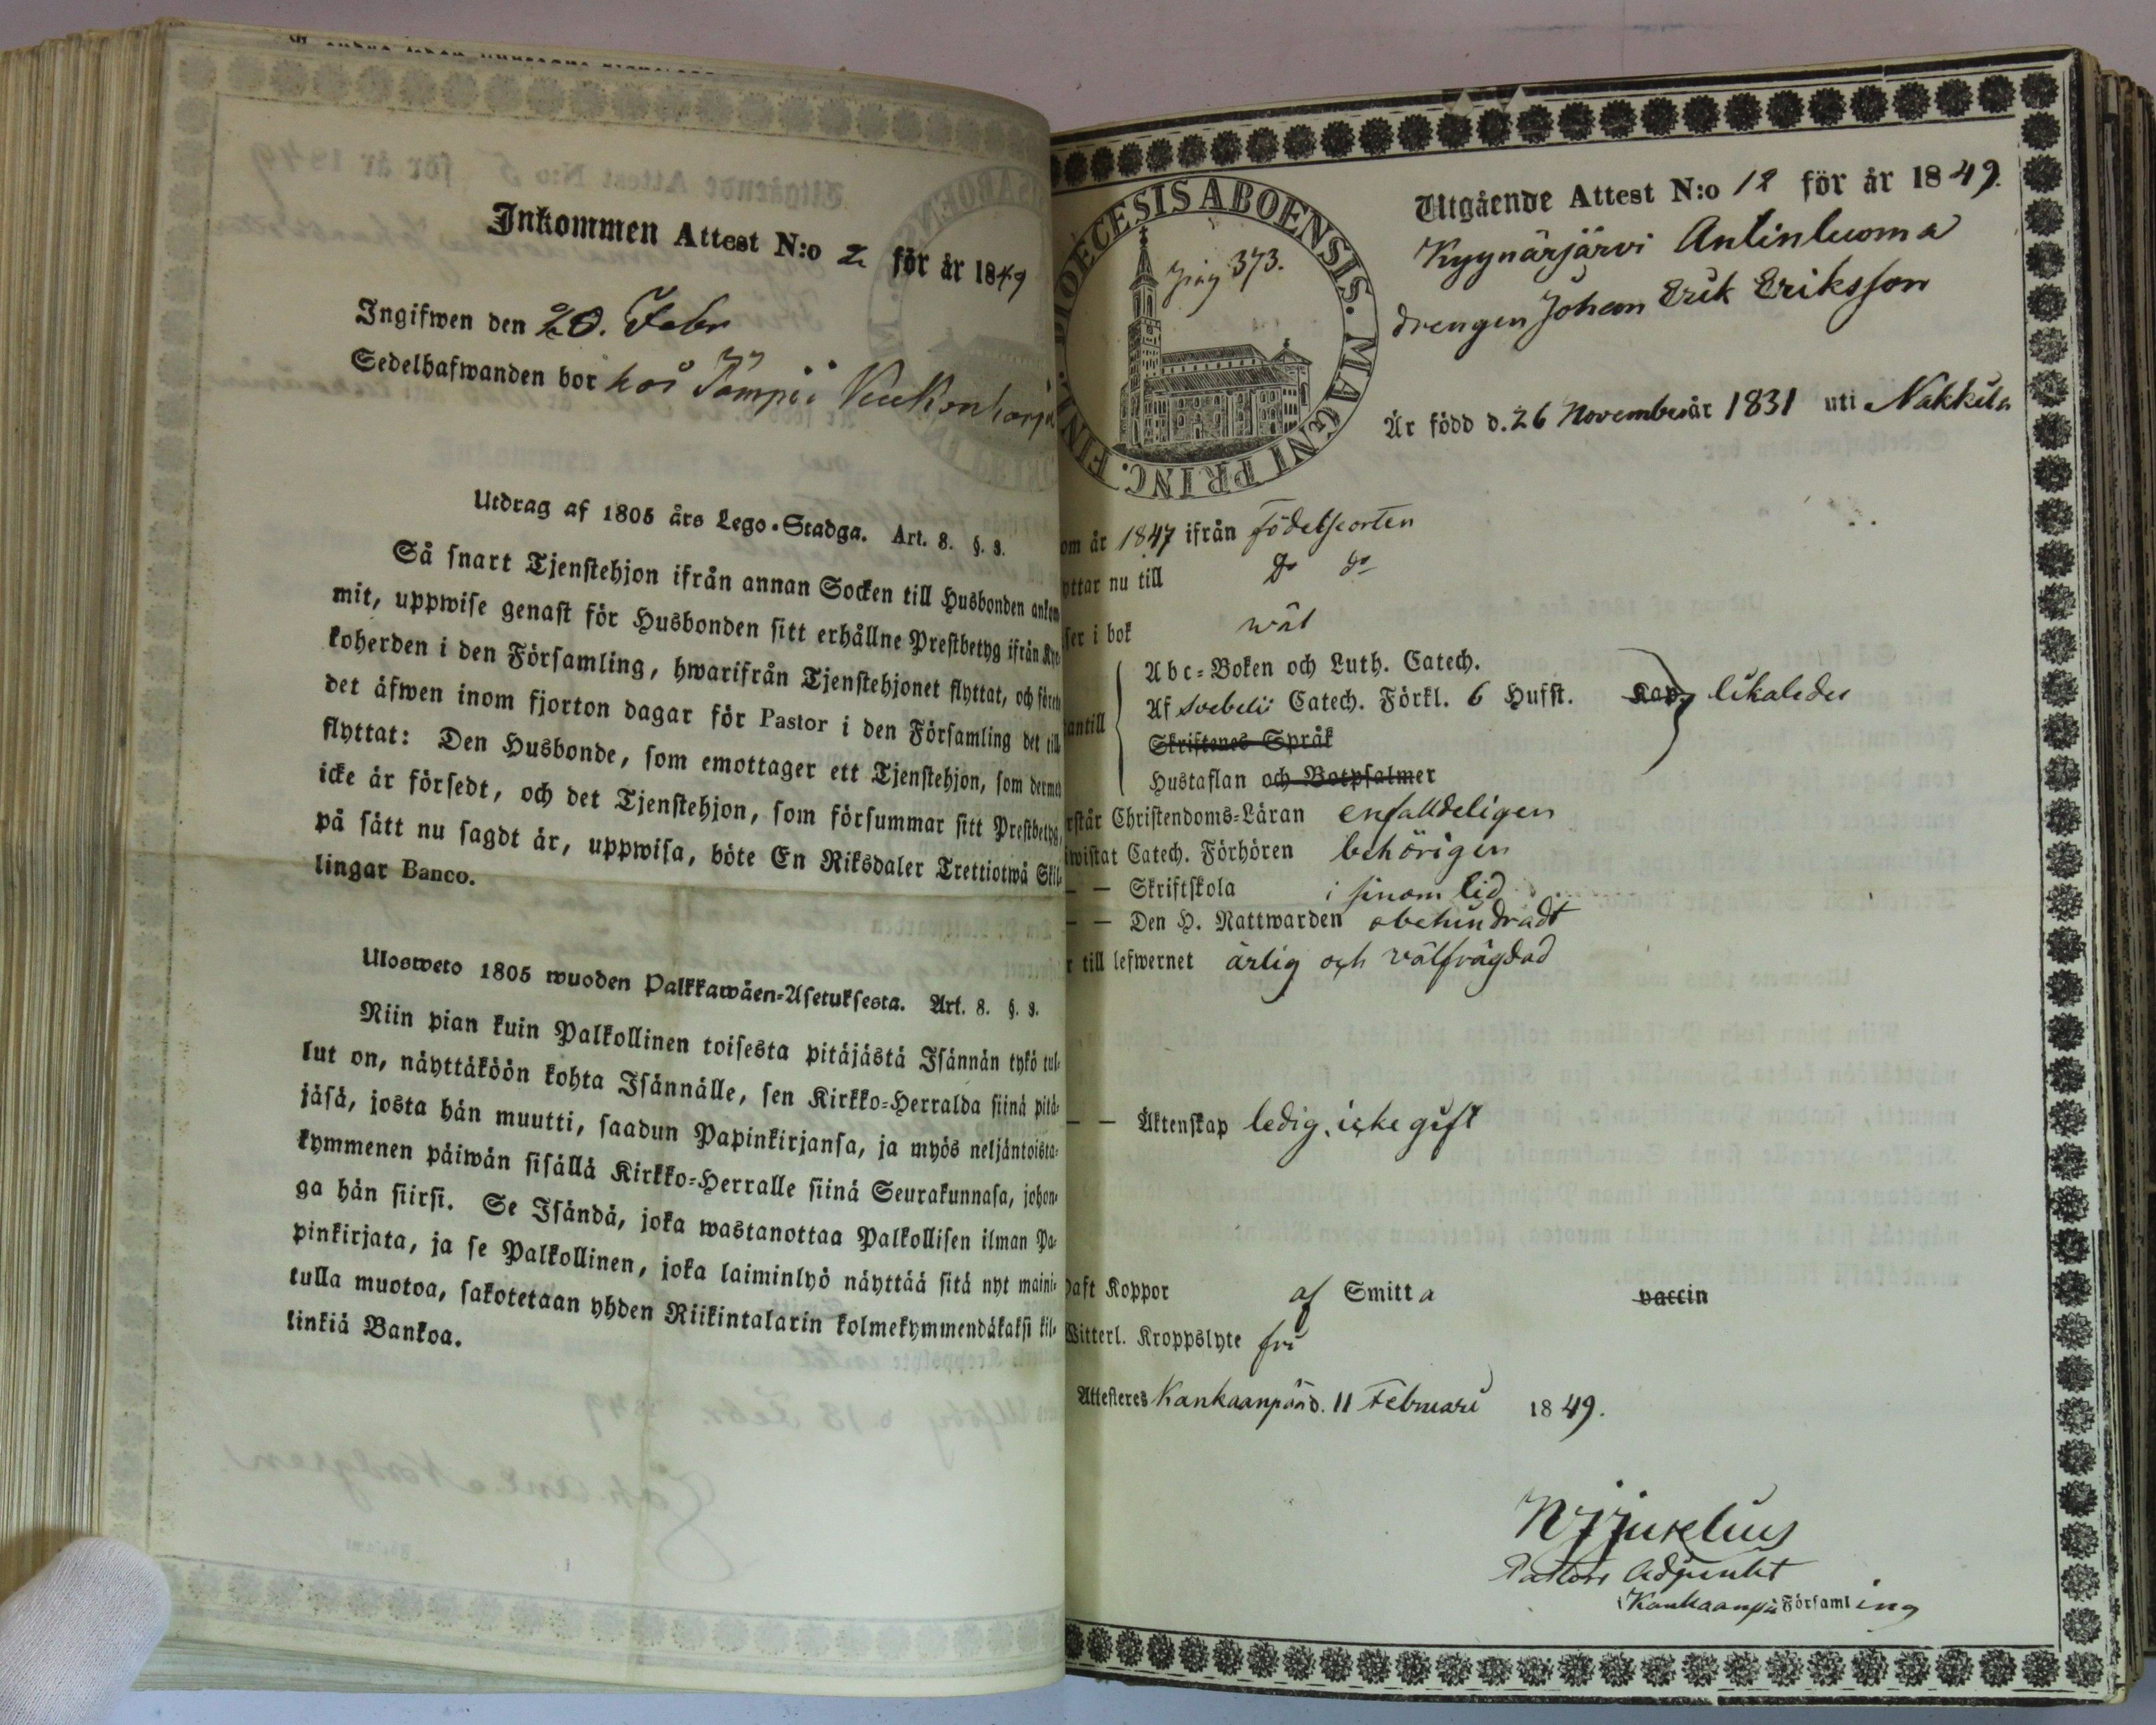 Inkommen Attest N:o 2 för år 1849
Ingifwen den 20. Febr
Sedelhafwanden bor hos Tomppi
Utdrag af 1805 års Lego-Stadga. Art. 8. §. 8.
Så snart Tjenstehjon ifrån annan Socken till Husbonden ankom
mit, uppwise genast för Husbonden sitt erhållne Prestbetyg ifrån Kyr
koherden i den Församling, hwarifrån Tjenstehjonet flyttat, och förete
det äfwen inom fjorton dagar för Pastor i den Församling det till
flyttat: Den Husbonde, som emottager ett Tjenstehjon, som dermed
icke är försedt, och det Tjenstehjon, som försummar sitt Prestbetyg,
på sätt nu sagdt är, uppwisa, böte En Riksdaler Trettiotwå Skil-
lingar Banco.
Ulosweto 1805 wuoden Palkkawäen-Asetuksesta. Art. 8. §. 8.
Niin pian kuin Palkollinen toisesta pitäjästä Isännän tykö tul-
lut on, näyttäköön kohta Isännälle, sen Kirkko-Herralda siinä pitä-
jäsä, josta hän muutti, saadun Papinkirjansa, ja myös neljäntoista-
kymmenen päiwän sisällä Kirkko-Herralle siinä Seurakunnasa, johon-
ga hän siirsi. Se Isändä, joka wastanottaa Palkollisen ilman Pa-
pinkirjata, ja se Palkollinen, joka laiminlyö näyttää sitä nyt maini-
tulla muotoa, sakotetaan yhden Riikintalarin kolmekymmendäkaksi kil-
linkiä Bankoa.
DIOECESIS ABOENSIS. MAGNI PRINC. FINL.
373.
Utgående Attest N:o 12 för år 1849.
Kyynärjärvi Antinluoma
drengen Johan Erik Eriksson
Är född d. 26 November år 1831 uti Nakkila
om år 1847 ifrån födelseorten
yttar nu till do do
ser i bok wäl
Abc-Boken och Luth. Catech.
antill Af Svebelii Catech. Förkl. 6 Hufst. Kap. likaledes
Skriftenes Språk
Hustaflan och Botpsalmer
rstår Christendoms-Läran enfaldeligen
iwistat Catech. Förhören behörigen
— — Skriftskola i sinom tid
— — Den H. Nattwarden obehindradt
r till lefwernet ärlig och välfrägdad
— — Äktenskap ledig, icke gift
haft Koppor af Smitta vaccin
Witterl. Kroppslyte fri
Attesteres Kankaanpää d. 11 Februari 1849.
Pastors Adjunkt
i Kankaanpää Församling